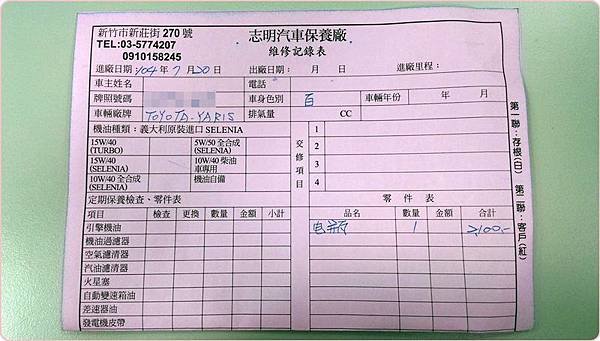 新竹市新莊街 270 號
TEL:03-5774207
0910158245
志明汽車保養廠
維修記錄表
進廠日期:104 年 7 月 20 日 出廠日期: 年 月 日 進廠里程:
車主姓名 電話
牌照號碼 車身色別 白 車輛年份 年 月
車輛廠牌 TOYOTA-YARIS 排氣量 CC
機油種類:義大利原裝進口 SELENIA
15W/40 (TURBO) 5W/50 全合成 (SELENIA)
15W/40 (SELENIA) 10W/40 柴油車專用
10W/40 全合成 (SELENIA) 機油自備
交修項目
1
2
3
4
定期保養檢查、零件表 零件表
項目 檢查 更換 數量 金額 小計 品名 數量 金額 合計
引擎機油 电瓶 1 2,100.-
機油過濾器
空氣濾清器
汽油濾清器
火星塞
自動變速箱油
差速器油
發電機皮帶
第一聯:存根(白) 第二聯:客戶(紅)